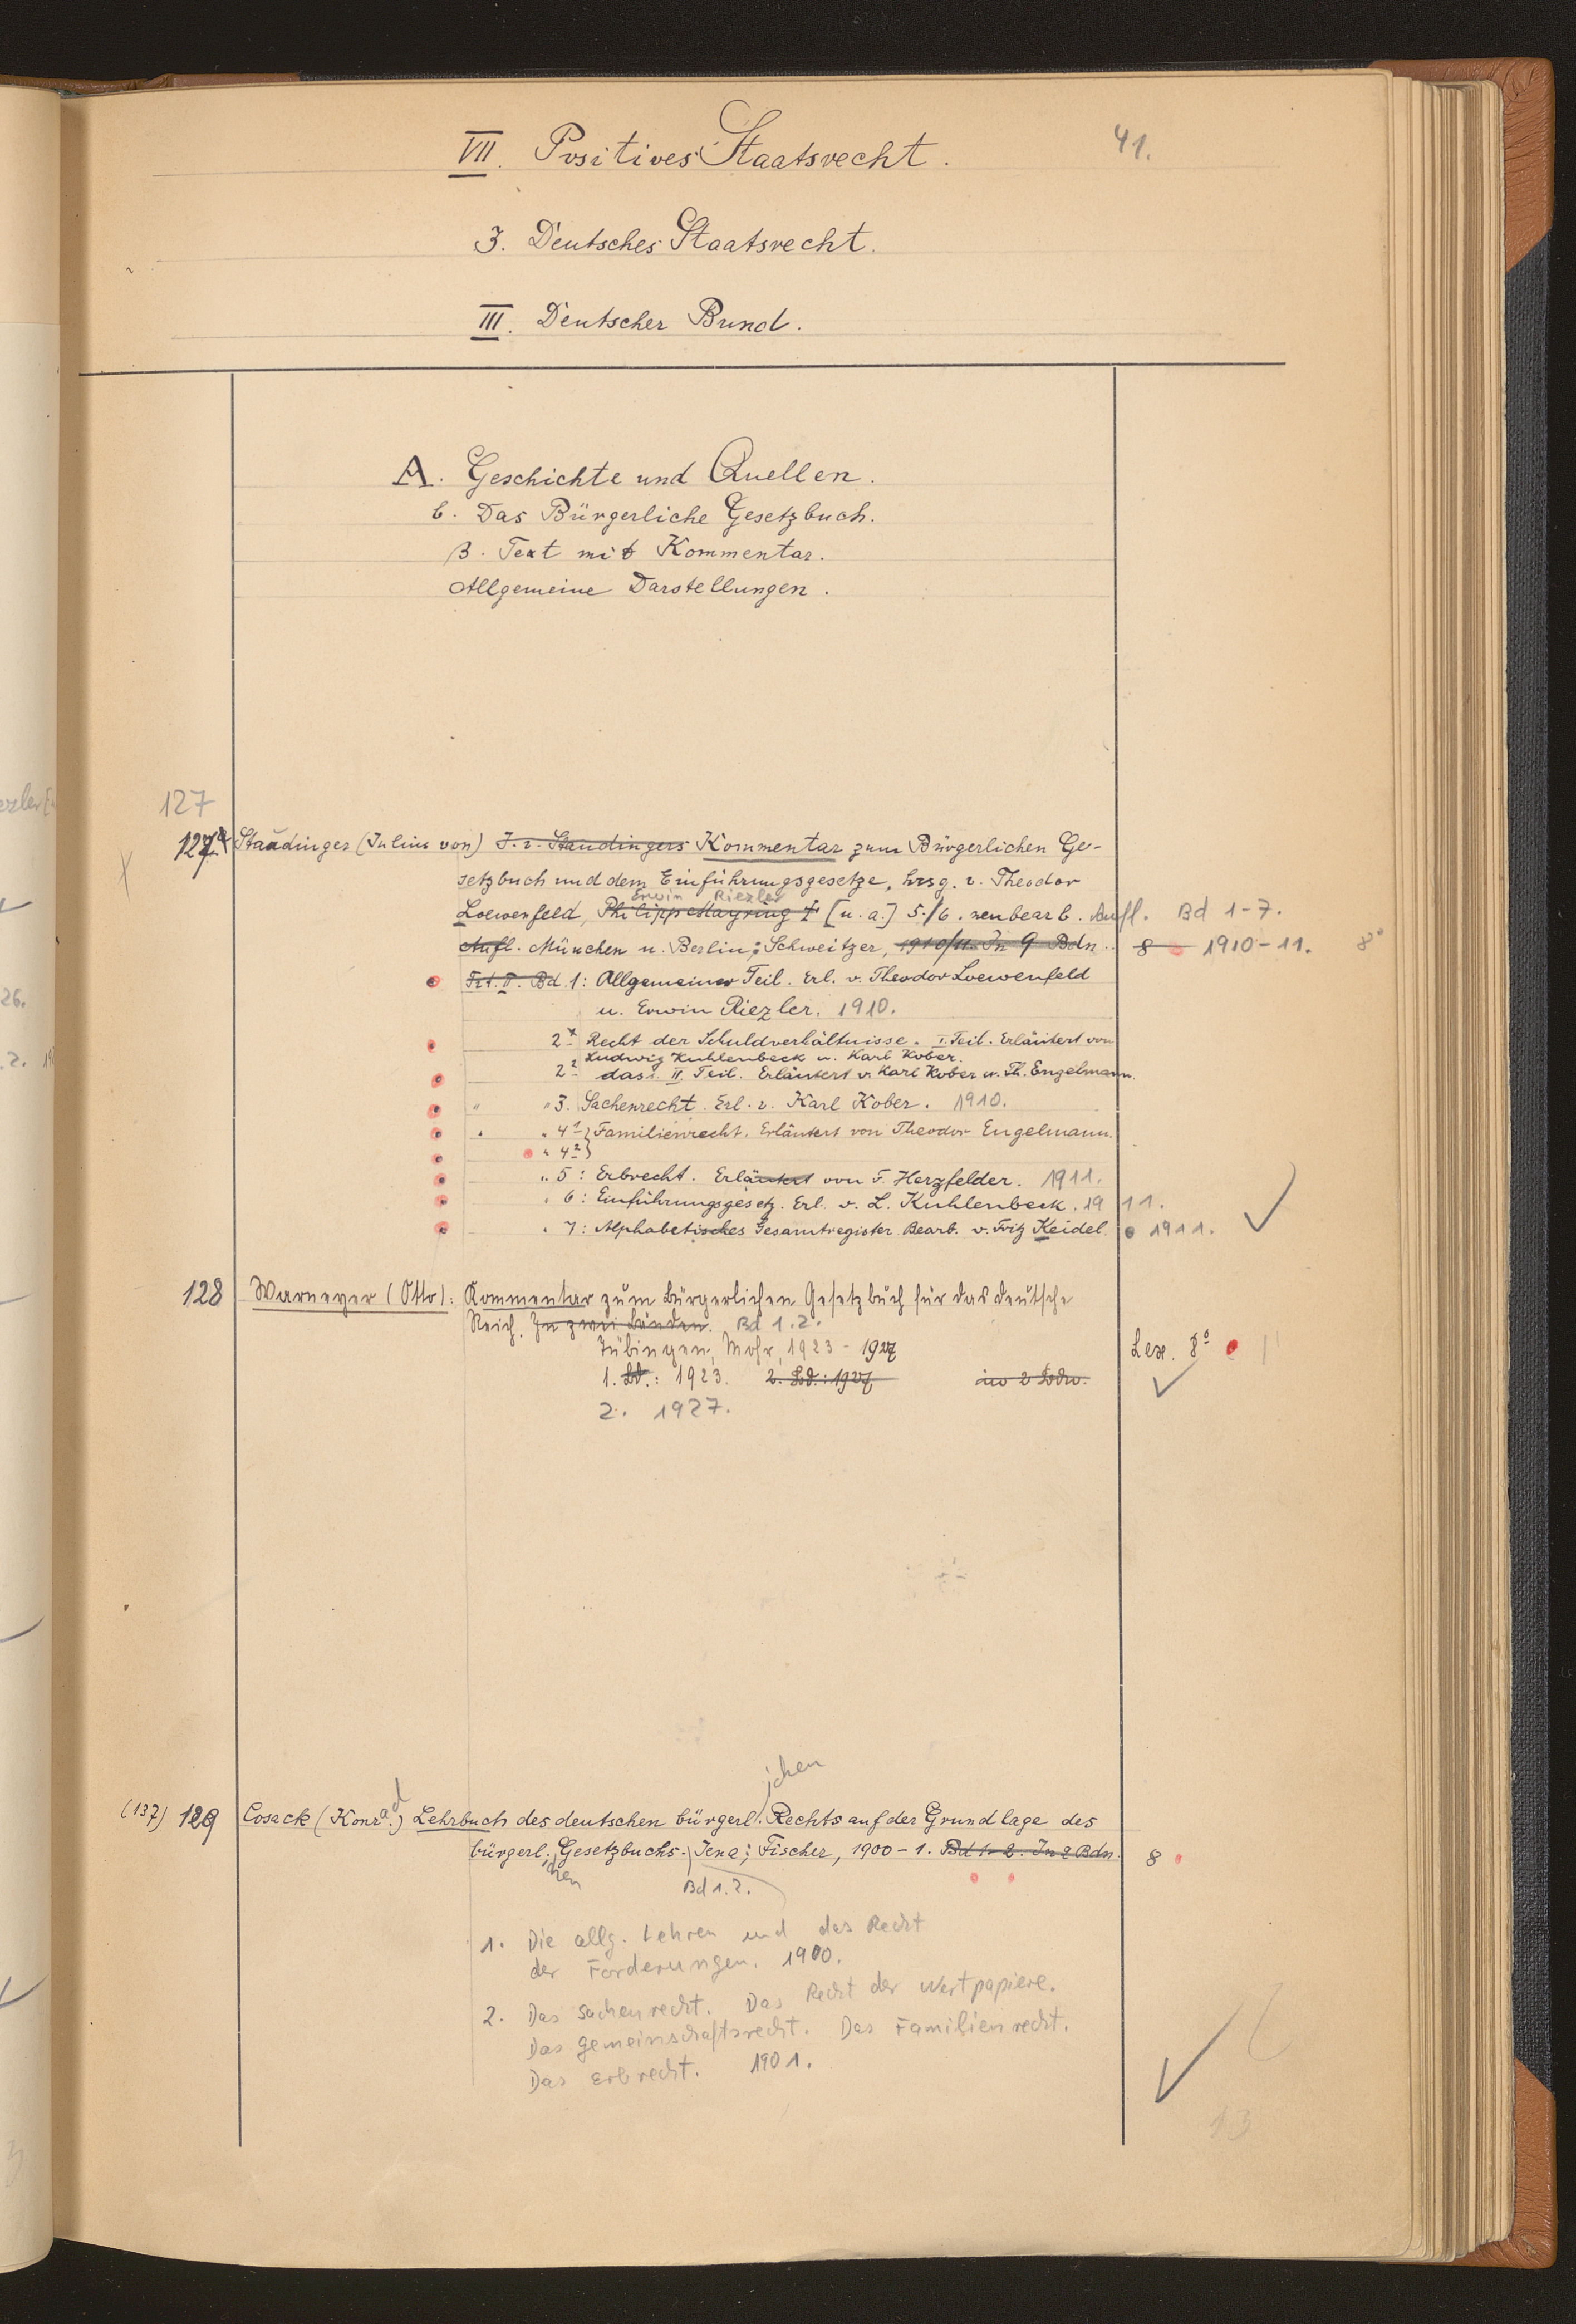 VII. Positives Staatsrecht.
41.
3. Deutsches Staatsrecht.
III. Deutscher Bund.
A. Geschichte und Quellen.
b. Das Bürgerliche Gesetzbuch.
β. Text mit Kommentar.
Allgemeine Darstellungen.
127
127 Staudinger (Julius von) J. v. Staudingers Kommentar zum Bürgerlichen Ge-
setzbuch und dem Einführungsgesetze, hrsg. v. Theodor
Erwin Riezler
Loewenfeld, Philipp Mayring † [u. a.] 5./6. neubearb. Aufl. Bd 1-7.
Aufl. München u. Berlin: Schweitzer, 1910/11. In 9 Bdn. 8 1910-11. 8°
Bd. 1: Allgemeiner Teil. Erl. v. Theodor Loewenfeld
u. Erwin Riezler. 1910.
2 1 Recht der Schuldverhältnisse. I. Teil. Erläutert von
Ludwig Kuhlenbeck u. Karl Kober.
2 2 das. II. Teil. Erläutert v. Karl Kober u. Th. Engelmann.
" " 3. Sachenrecht. Erl. v. Karl Kober. 1910.
" " 4 1 } Familienrecht. Erläutert von Theodor Engelmann.
" 4 2 }
" 5: Erbrecht. Erläutert von F. Herzfelder. 1911.
" 6: Einführungsgesetz. Erl. v. L. Kuhlenbeck. 1911.
" 7: Alphabetisches Gesamtregister. Bearb. v. Fritz Keidel. 1911.
128 Warneyer (Otto): Kommentar zum Bürgerlichen Gesetzbuch für das deutsche
Reich. In zwei Bänden. Bd 1.2.
Tübingen, Mohr, 1923-1927 Lex. 8°
1. Bd.: 1923. 2. Bd.: 1927 in 2 Bdn.
2. 1927.
ichen
(137) 129 Cosack (Konrad) Lehrbuch des deutschen bürgerl. Rechts auf der Grundlage des
bürgerl. Gesetzbuchs. Jena: Fischer, 1900-1. Bd 1-2. In 2 Bdn. 8
ichen Bd 1.2.
1. Die allg. Lehren und das Recht
der Forderungen. 1900.
2. Das Sachenrecht. Das Recht der Wertpapiere.
Das Gemeinschaftsrecht. Das Familienrecht.
Das Erbrecht. 1901.
13